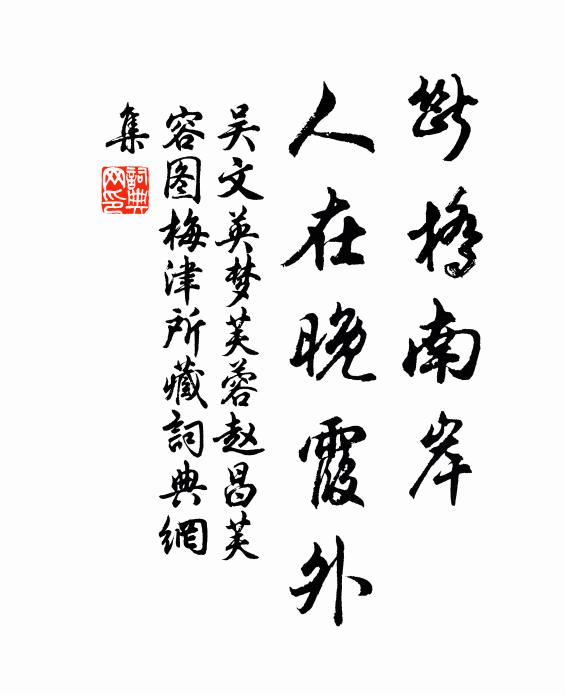 斷橋南岸
人在晚霞外
吴文英梦芙蓉赵昌芙
容图梅津所藏詞典網
集
詞典
网印